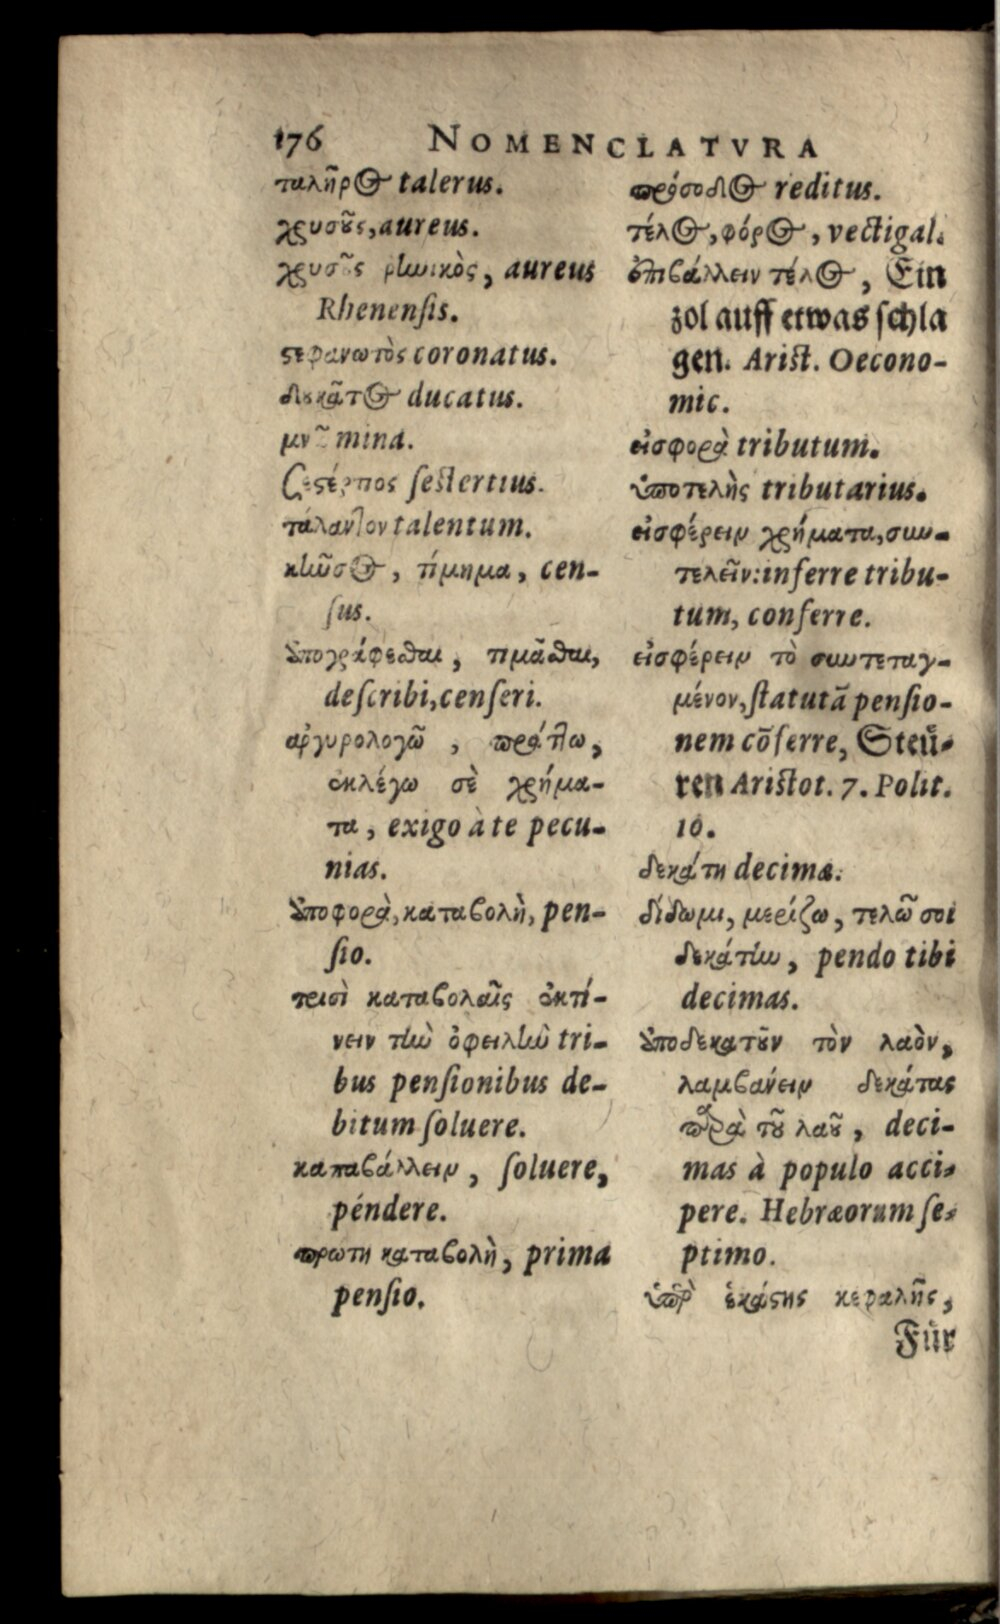 176 NOMENCLATVRA
ταληῖρος talerus.
χρυσοῦς, aureus.
χρυσοῦς ρηνικὸς, aureus
Rhenenſis.
στεφανωτὸς coronatus.
δουκᾶτος ducatus.
μνᾶ mina.
σεστέρτιος ſeſtertius.
τάλαντον talentum.
κῆνσος, τίμημα, cen-
ſus.
ἀπογράφεσθαι, τιμᾶσθαι,
deſcribi, cenſeri.
ἀργυρολογῶ, πράττω,
ἐκλέγω σὲ χρήμα-
τα, exigo à te pecu-
nias.
ἀποφορὰ, καταβολὴ, pen-
ſio.
τρισὶ καταβολαῖς ἐκτί-
νειν τὴν ὀφειλὴν tri-
bus penſionibus de-
bitum ſoluere.
καταβάλλειν, ſoluere,
péndere.
πρωτη καταβολὴ, prima
penſio.
πρόσοδος reditus.
τέλος, φόρος, vectigal.
ἐπιβάλλειν τέλος, Ein
zol auff etwas ſchla
gen. Ariſt. Oecono-
mic.
εἰσφορὰ tributum.
ὑποτελὴς tributarius.
εἰσφέρειν χρήματα, συν-
τελεῖν: inferre tribu-
tum, conferre.
εἰσφέρειν τὸ συντεταγ-
μένον, ſtatutã penſio-
nem cõferre, Steü-
ren Ariſtot. 7. Polit.
10.
δεκάτη decimæ.
δίδωμι, μερίζω, τελῶ σοι
δεκάτην, pendo tibi
decimas.
ἀποδεκατοῦν τὸν λαὸν,
λαμβάνειν δεκάτας
παρὰ τοῦ λαοῦ, deci-
mas à populo acci-
pere. Hebræorum ſe-
ptimo.
ὑπὲρ ἑκάστης κεφαλῆς,
Für